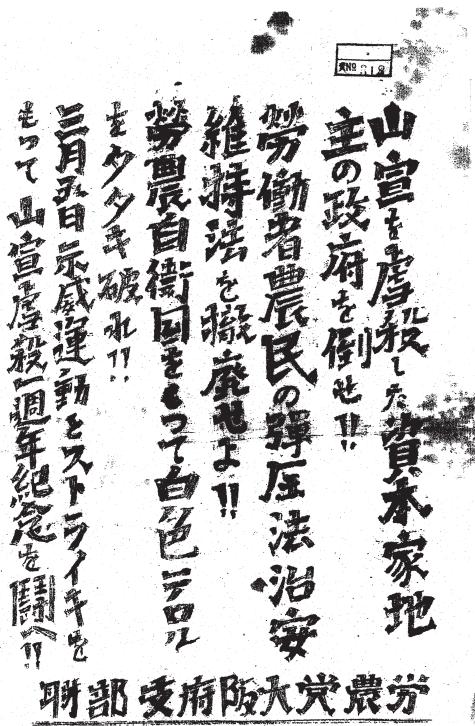 山宣を虐殺した資本家地
主の政府を倒せ!!
勞働者農民の彈圧法治安
維持法を撤廃せよ!!
勞農自衛団をもって白色テロル
をタタキ破れ!!
三月五日示威運動とストライキを
もって山宣虐殺一週年紀念を闘へ!!
労農党大阪府支部聯